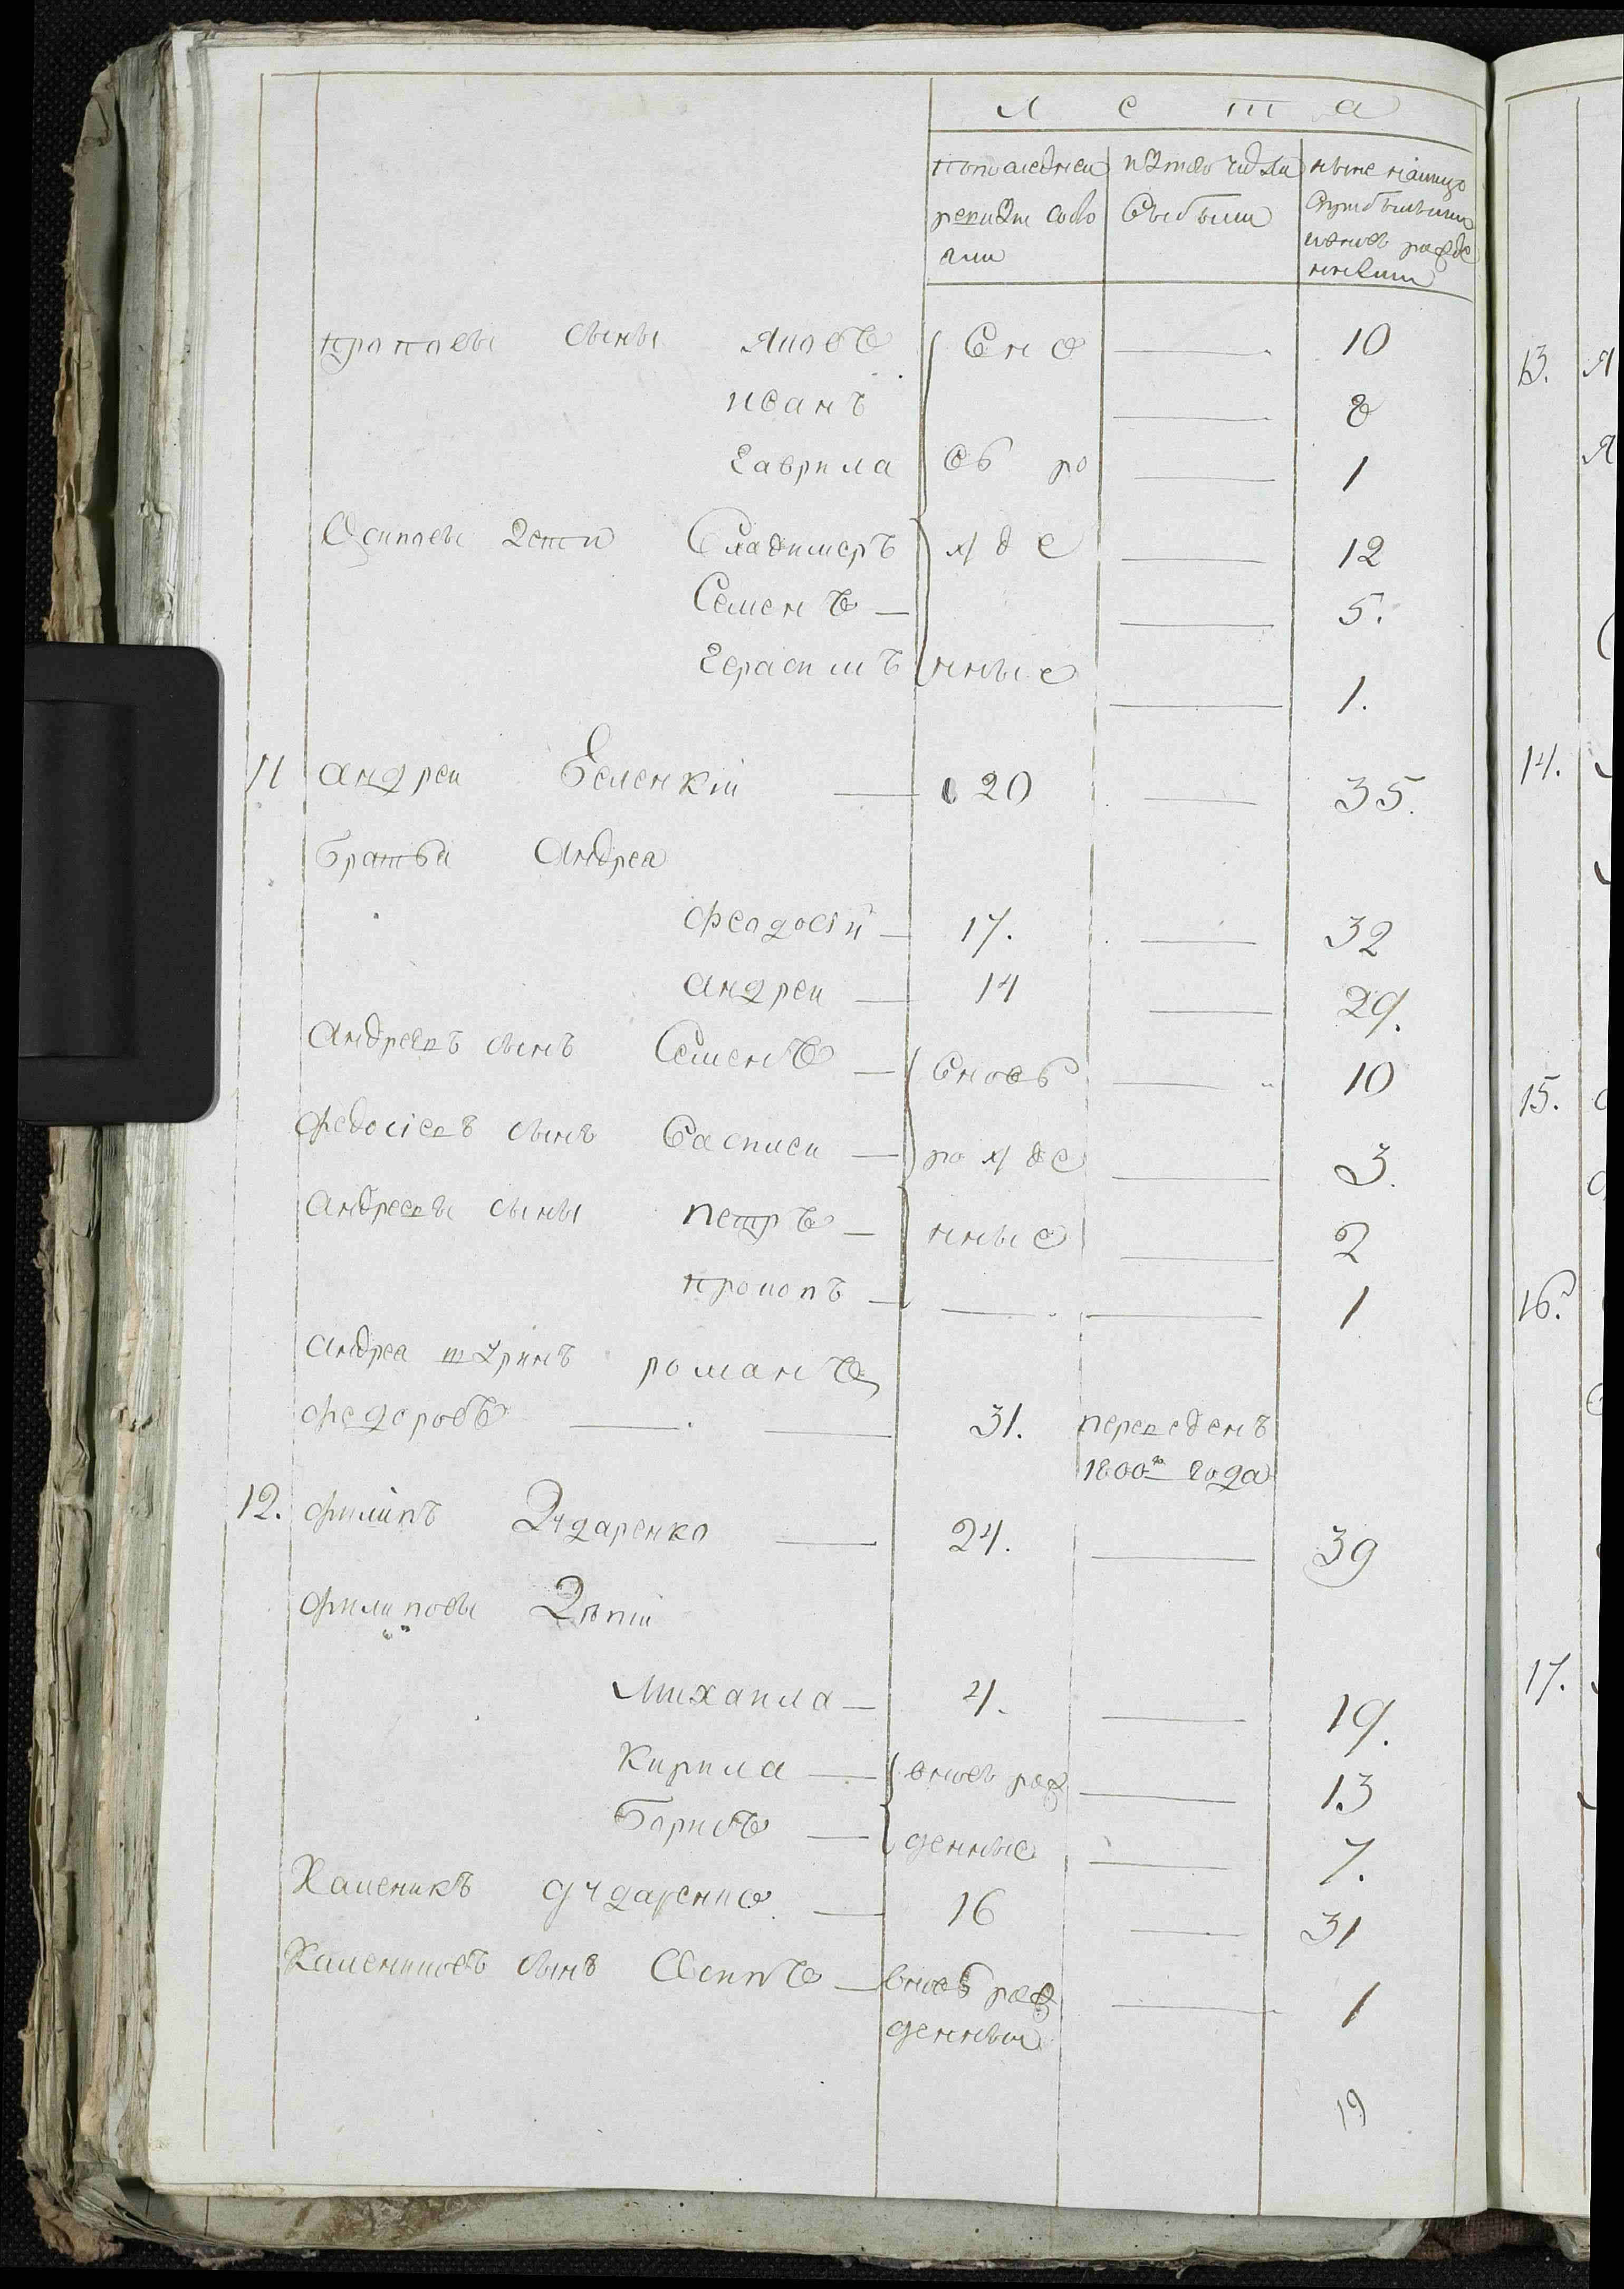 л е т а
попоследней
ревизiи состо
яли
изтого числа
выбыли
ныне налицо
вновь рожде
нными
яковъ
вно
10
иванъ
8
гаврила
вь ро
1
Осиповы дети
Владимеръ
жде
12
Семенъ
5.
герасимъ
нные
1.
11
андреи Беленкiй
20
35.
братья Андрея
феодосiй
17.
32
андреи
14
29.
Андреевъ сынъ Семенъ
вновь
10
Федосiевъ сынъ Василеи
рожде
3.
андреевы сыны петръ
нные
2
прокопъ
1
Андрея шуринъ романъ
федоровъ
31.
переведенъ
1800го года
12. филипъ Дударенко
24.
39
филиповы Дети
Михаила
4.
19.
Кирила
вновь рож
13
Борисъ
денные
7.
Каленикъ дударенко
16
31
Калениковъ сынъ Осипъ
вновь рож
1
денный
19
13. Я
Я
14.
15.
16.
17.